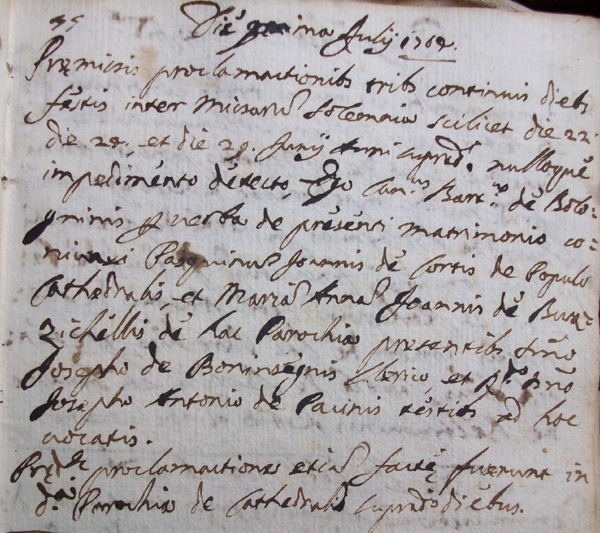 35 Die prima Julij 1702.
Pręmissis proclamationib' tribs continuis diebs
festis inter Missarũ solemnia scilicet die 22.
die 28. et die 29. Junij Anni suprad.i nulloque
impedimento detecto, Ego Can.us Bart.us de Bolo-
gninis p verba de presenti matrimonio co-
niunxi Pasquinũ Joannis de Cortis de Populo
Cathedralis, et Mariã Annã Joannis de Buz-
zichellis de hac Parochia presentibs Dño
Josepho de Boninsegnis Clerico et p.to Dño
Josepho Antonio de Pacinis testibs ad hoc
vocatis.
Pręd.ę proclamationes etiã factę fuerunt in
d.a Parochia de Cathedrali suprad.is diebus.